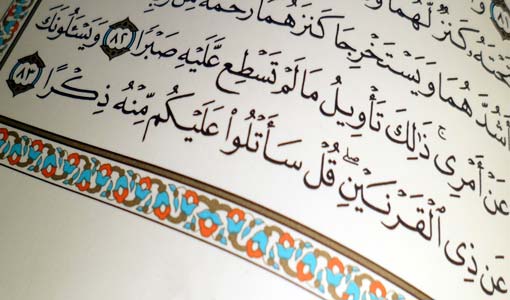 تَحْتَهُۥ كَنزٌ لَّهُمَا وَ
أَشُدَّهُمَا وَيَسْتَخْرِجَا كَنزَهُمَا رَحْمَةً مِّن رَّبِّ
عَنْ أَمْرِى ۚ ذَٰلِكَ تَأْوِيلُ مَا لَمْ تَسْطِع عَّلَيْهِ صَبْرًا ٨٢ وَيَسْـَٔلُونَكَ
عَن ذِى ٱلْقَرْنَيْنِ ۖ قُلْ سَأَتْلُوا۟ عَلَيْكُم مِّنْهُ ذِكْرًا ٨٣